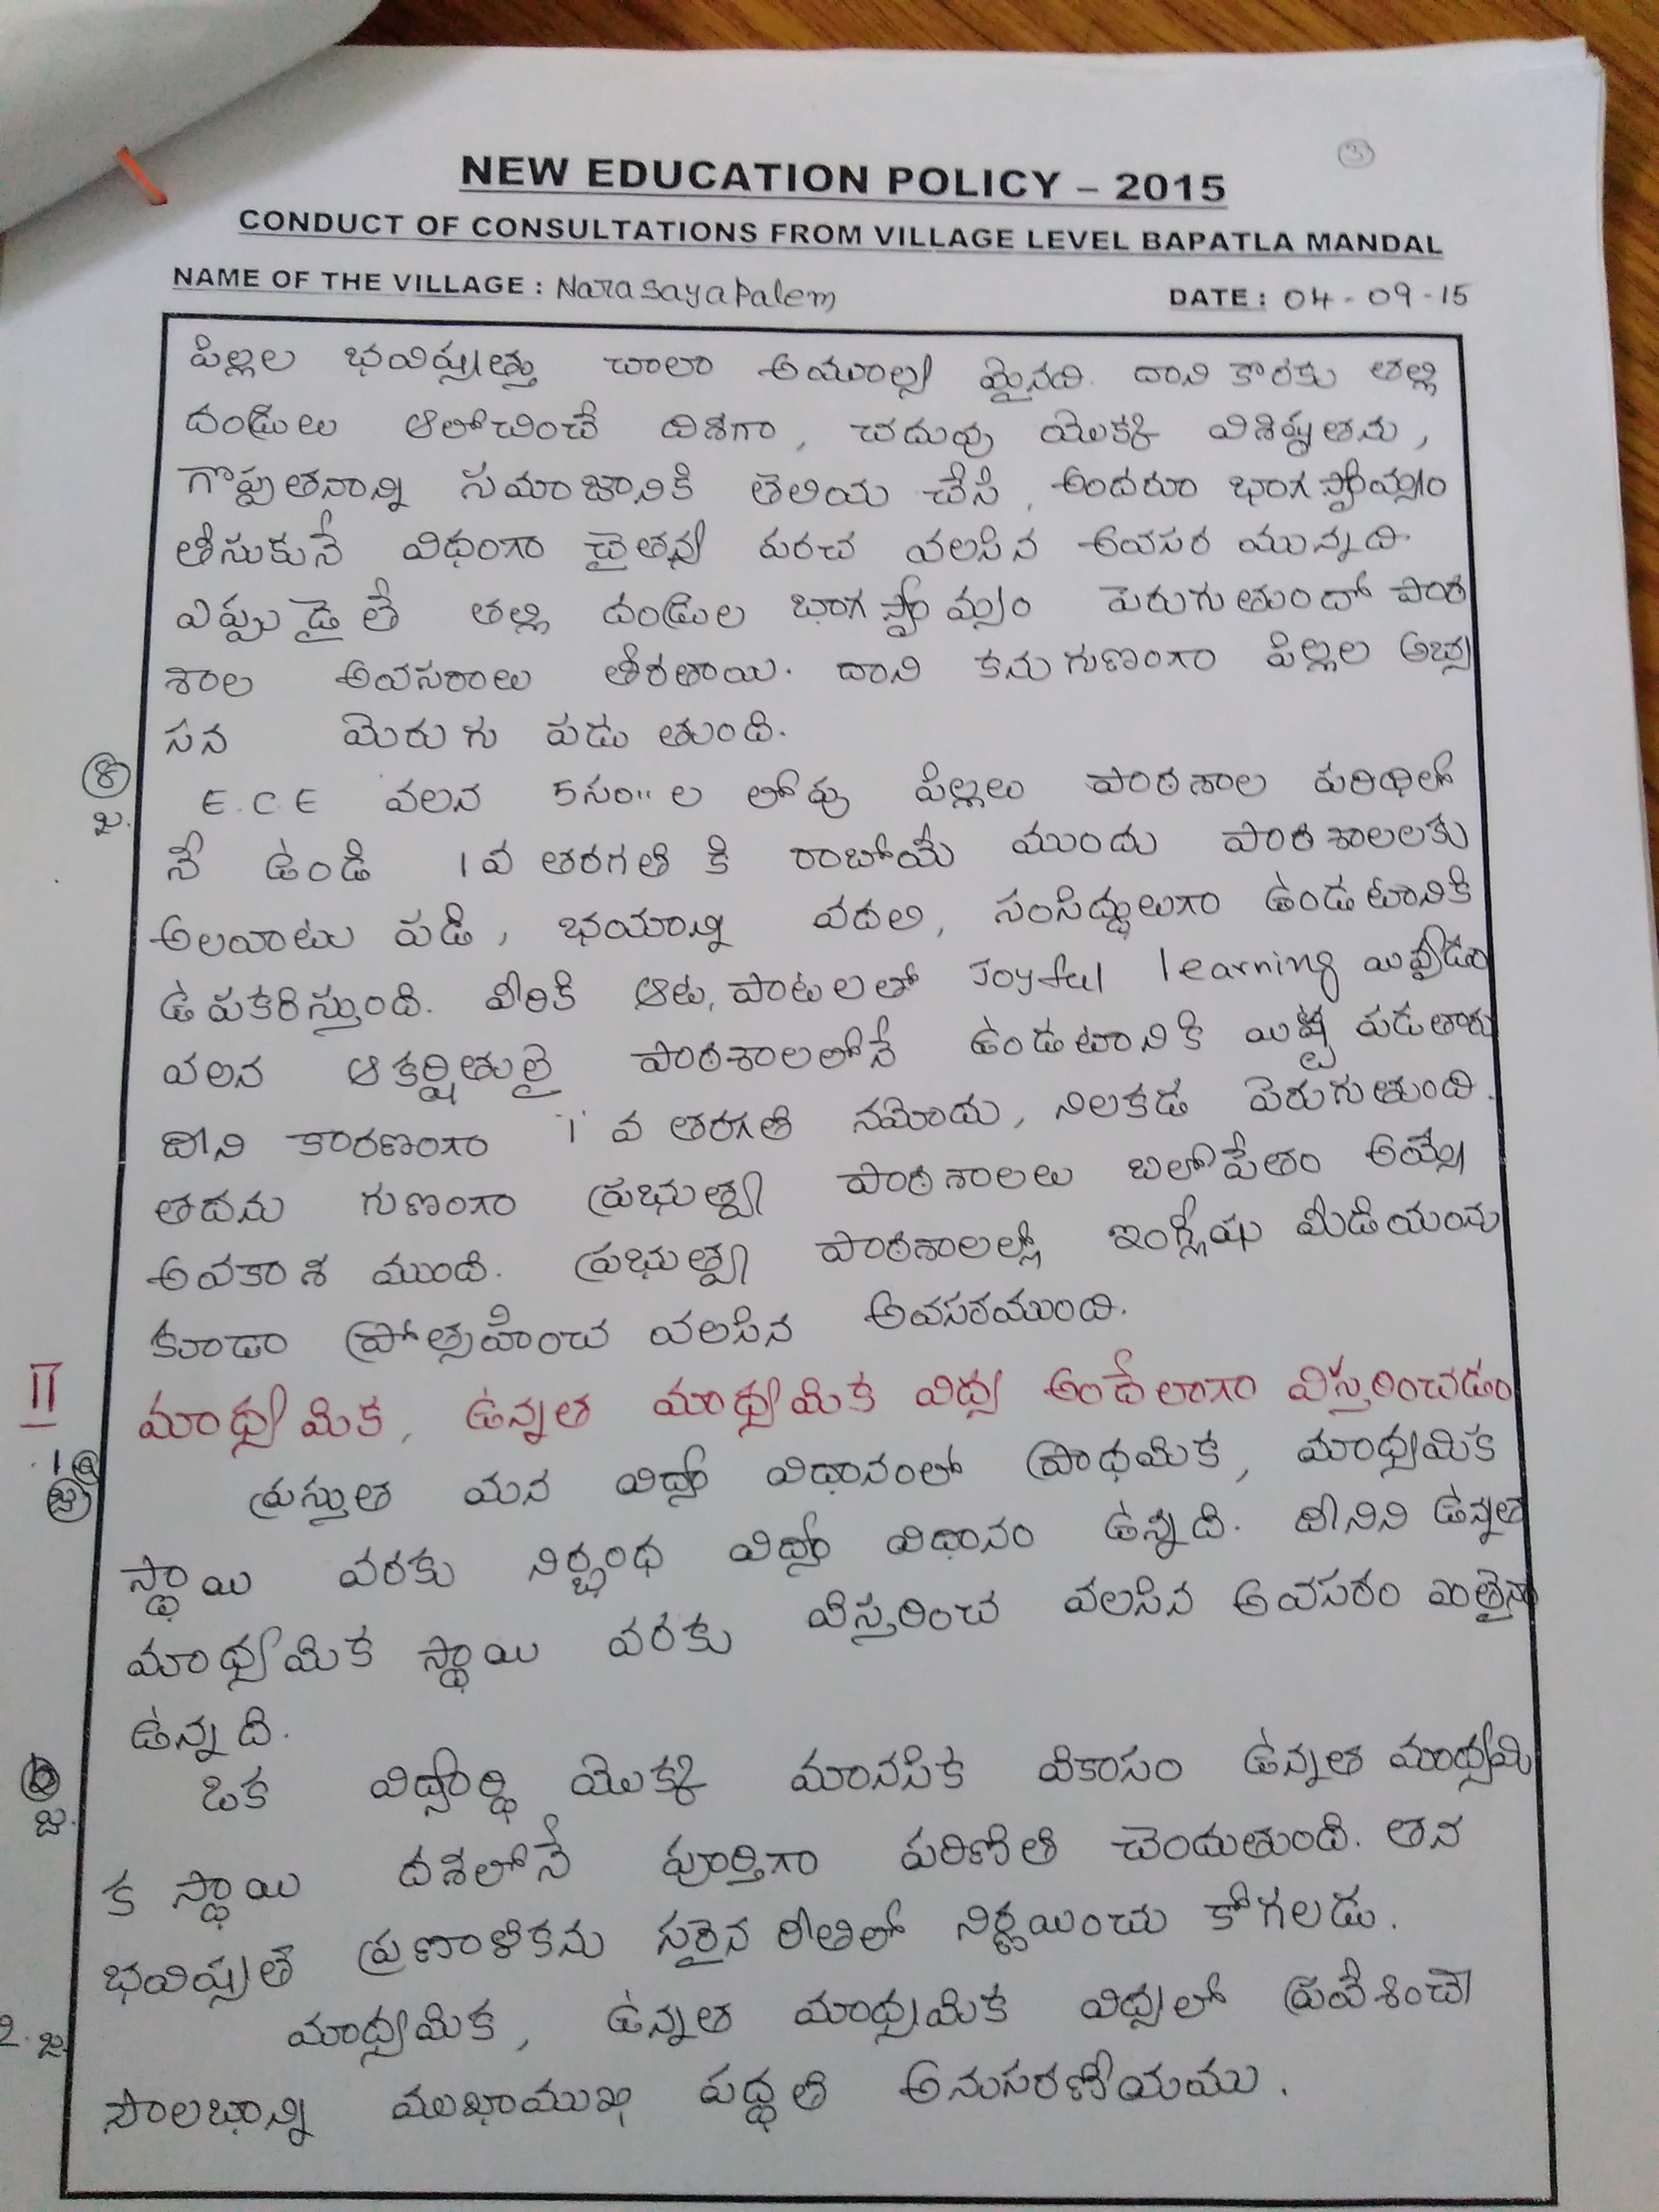 3
NEW EDUCATION POLICY – 2015
CONDUCT OF CONSULTATIONS FROM VILLAGE LEVEL BAPATLA MANDAL
NAME OF THE VILLAGE : Narasayapalem DATE : 04-09-15
పిల్లల భవిష్యత్తు చాలా అమూల్య మైనది. దాని కొరకు తల్లి
దండ్రులు ఆలోచించే దిశగా, చదువు యొక్క విశిష్టతను,
గొప్పతనాన్ని సమాజానికి తెలియ చేసి, అందరూ భాగస్వామ్యం
తీసుకునే విధంగా చైతన్య పరచ వలసిన అవసర మున్నది
ఎప్పుడైతే తల్లి దండ్రుల భాగస్వామ్యం పెరుగుతుందో పాఠ
శాల అవసరాలు తీరతాయి. దాని కనుగుణంగా పిల్లల అభ్య
సన మెరుగు పడు తుంది.
8 జ. E.C.E వలన 5సం॥ల లోపు పిల్లలు పాఠశాల పరిధిలో
నే ఉండి 1వ తరగతి కి రాబోయే ముందు పాఠశాలలకు
అలవాటు పడి, భయాన్ని వదలి, సంసిద్ధులుగా ఉండటానికి
ఉపకరిస్తుంది. వీరికి ఆట, పాటలతో Joyful learning యివ్వడం
వలన ఆకర్షితులై పాఠశాలలోనే ఉండటానికి యిష్ట పడతారు
దీని కారణంగా 1వ తరగతి నమోదు, నిలకడ పెరుగుతుంది.
తదను గుణంగా ప్రభుత్వ పాఠశాలలు బలోపేతం అయ్యే
అవకాశ ముంది. ప్రభుత్వ పాఠశాలల్లో ఇంగ్లీషు మీడియంను
కూడా ప్రోత్సహించ వలసిన అవసరముంది.
II మాధ్యమిక, ఉన్నత మాధ్యమిక విద్య అందేలాగా విస్తరించడం
1 a జ ప్రస్తుత మన విద్యా విధానంలో ప్రాథమిక, మాధ్యమిక
స్థాయి వరకు నిర్బంధ విద్యా విధానం ఉన్నది. దీనిని ఉన్నత
మాధ్యమిక స్థాయి వరకు విస్తరించ వలసిన అవసరం ఎంతైనా
ఉన్నది.
b జ. ఒక విద్యార్థి యొక్క మానసిక వికాసం ఉన్నత మాధ్యమి
క స్థాయి దశలోనే పూర్తిగా పరిణితి చెందుతుంది. తన
భవిష్యత్ ప్రణాళికను సరైన రీతిలో నిర్ణయించు కోగలడు.
2. జ. మాధ్యమిక, ఉన్నత మాధ్యమిక విద్యలో ప్రవేశించే
సౌలభాన్ని ముఖాముఖి పద్ధతి అనుసరణీయము.